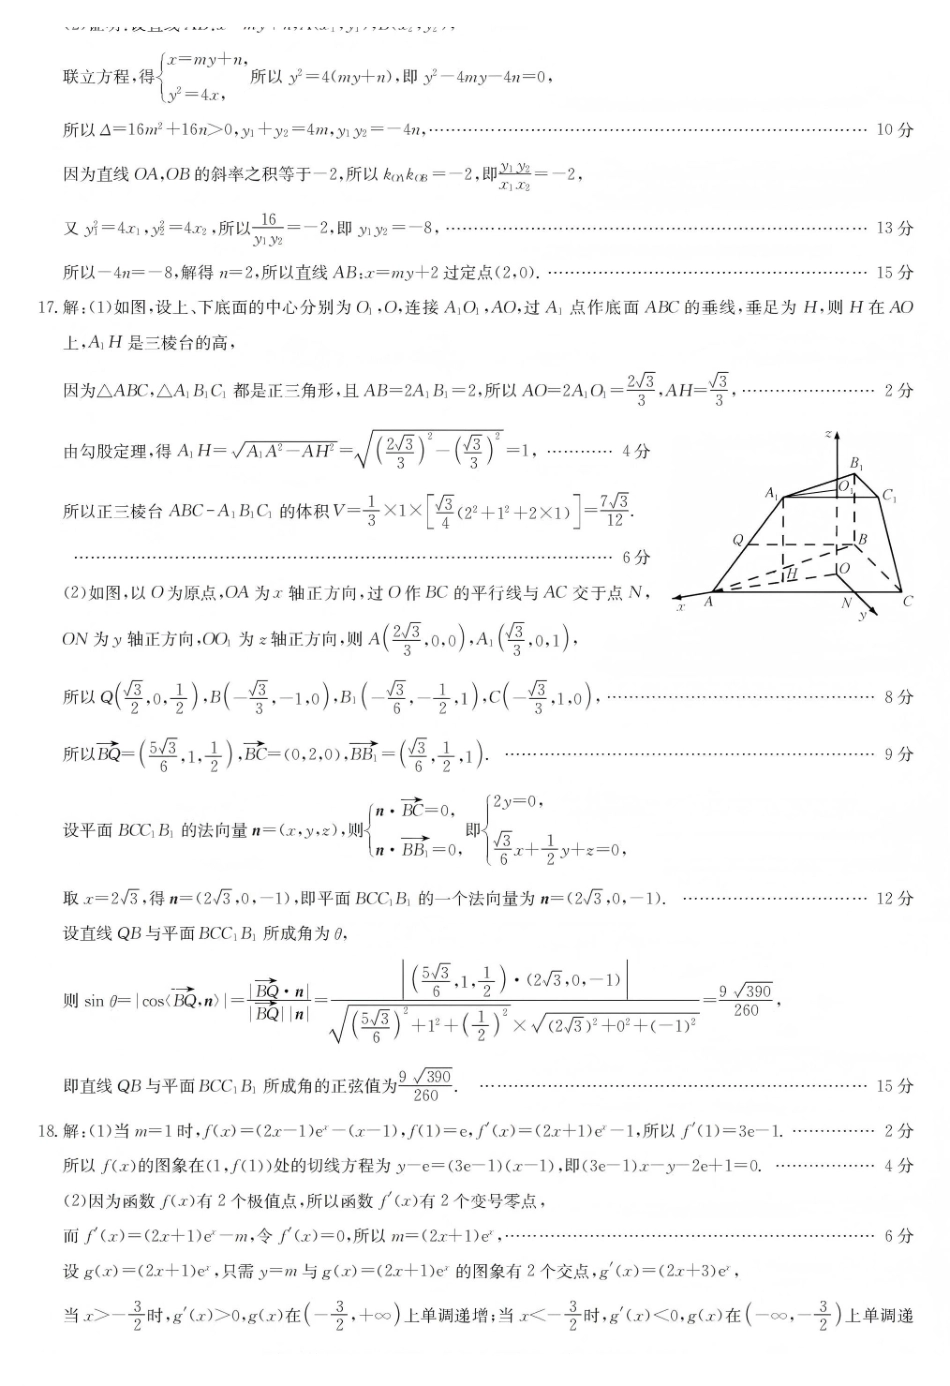 联立方程,得{x=my+n, y²=4x, 所以 y²=4(my+n),即 y²-4my-4n=0,
所以 Δ=16m²+16n>0,y₁+y₂=4m,y₁y₂=-4n,…………10 分
因为直线 OA,OB 的斜率之积等于-2,所以 k_OA k_OB=-2,即 y₁y₂/x₁x₂=-2,
又 y₁²=4x₁,y₂²=4x₂,所以 16/y₁y₂=-2,即 y₁y₂=-8,…………13 分
所以-4n=-8,解得 n=2,所以直线 AB:x=my+2 过定点(2,0).…………15 分
17. 解:(1)如图,设上、下底面的中心分别为 O₁,O,连接 A₁O₁,AO,过 A₁ 点作底面 ABC 的垂线,垂足为 H,则 H 在 AO
上,A₁H 是三棱台的高,
因为△ABC,△A₁B₁C₁ 都是正三角形,且 AB=2A₁B₁=2,所以 AO=2A₁O₁=2√3/3,AH=√3/3,…………2 分
由勾股定理,得 A₁H=√(A₁A²-AH²)=√((2√3/3)²-(√3/3)²)=1,…………4 分
所以正三棱台 ABC-A₁B₁C₁ 的体积 V=1/3×1×[√3/4(2²+1²+2×1)]=7√3/12.
…………6 分
(2)如图,以 O 为原点,OA 为 x 轴正方向,过 O 作 BC 的平行线与 AC 交于点 N,
ON 为 y 轴正方向,OO₁ 为 z 轴正方向,则 A(2√3/3,0,0),A₁(√3/3,0,1),
z
B₁
A₁
O₁
C₁
Q
B
H
O
x
A
N
C
y
所以 Q(√3/2,0,1/2),B(-√3/3,-1,0),B₁(-√3/6,-1/2,1),C(-√3/3,1,0),…………8 分
所以 BQ→=(5√3/6,1,1/2),BC→=(0,2,0),BB₁→=(√3/6,1/2,1).…………9 分
设平面 BCC₁B₁ 的法向量 n=(x,y,z),则{n·BC→=0, n·BB₁→=0, 即{2y=0, √3/6x+1/2y+z=0,
取 x=2√3,得 n=(2√3,0,-1),即平面 BCC₁B₁ 的一个法向量为 n=(2√3,0,-1).…………12 分
设直线 QB 与平面 BCC₁B₁ 所成角为 θ,
则 sin θ=|cos⟨BQ→,n⟩|=|BQ→·n|/|BQ→||n|=|(5√3/6,1,1/2)·(2√3,0,-1)|/(√((5√3/6)²+1²+(1/2)²)×√((2√3)²+0²+(-1)²))=9√390/260,
即直线 QB 与平面 BCC₁B₁ 所成角的正弦值为 9√390/260.…………15 分
18. 解:(1)当 m=1 时,f(x)=(2x-1)eˣ-(x-1),f(1)=e,f′(x)=(2x+1)eˣ-1,所以 f′(1)=3e-1.…………2 分
所以 f(x)的图象在(1,f(1))处的切线方程为 y-e=(3e-1)(x-1),即(3e-1)x-y-2e+1=0.…………4 分
(2)因为函数 f(x)有 2 个极值点,所以函数 f′(x)有 2 个变号零点,
而 f′(x)=(2x+1)eˣ-m,令 f′(x)=0,所以 m=(2x+1)eˣ,…………6 分
设 g(x)=(2x+1)eˣ,只需 y=m 与 g(x)=(2x+1)eˣ 的图象有 2 个交点,g′(x)=(2x+3)eˣ,
当 x>-3/2时,g′(x)>0,g(x)在(-3/2,+∞)上单调递增;当 x<-3/2时,g′(x)<0,g(x)在(-∞,-3/2)上单调递